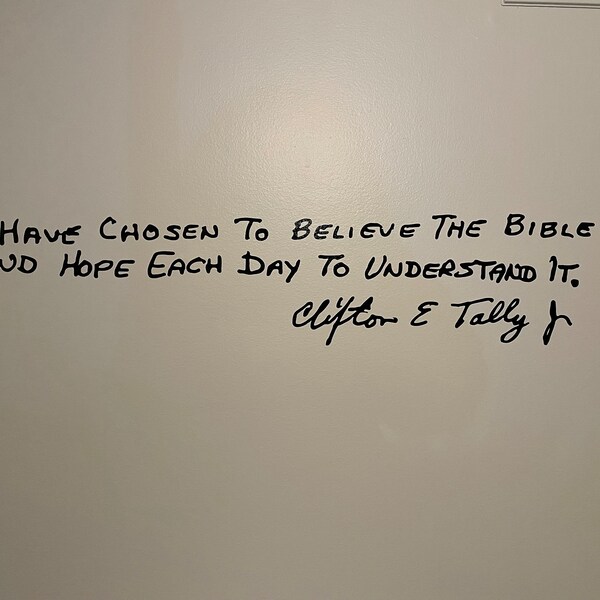 HAVE CHOSEN TO BELIEVE THE BIBLE
ND HOPE EACH DAY TO UNDERSTAND IT.
Clifton E Tally Jr